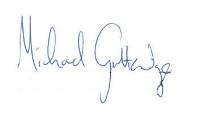 Michael Gutteridge